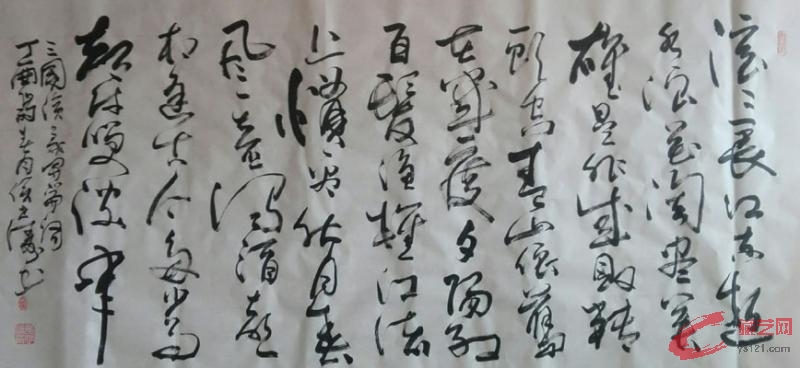 滚〻長江东逝
水浪花淘尽英
雄是非成败转
头空青山依舊
在幾度夕陽红
白髮渔樵江渚
上惯看秋月春
风一壶濁酒喜
相逢古今多少事
都付笑谈中
三國演义开篇词
丁酉岁春月 书
艺网
ys121.com